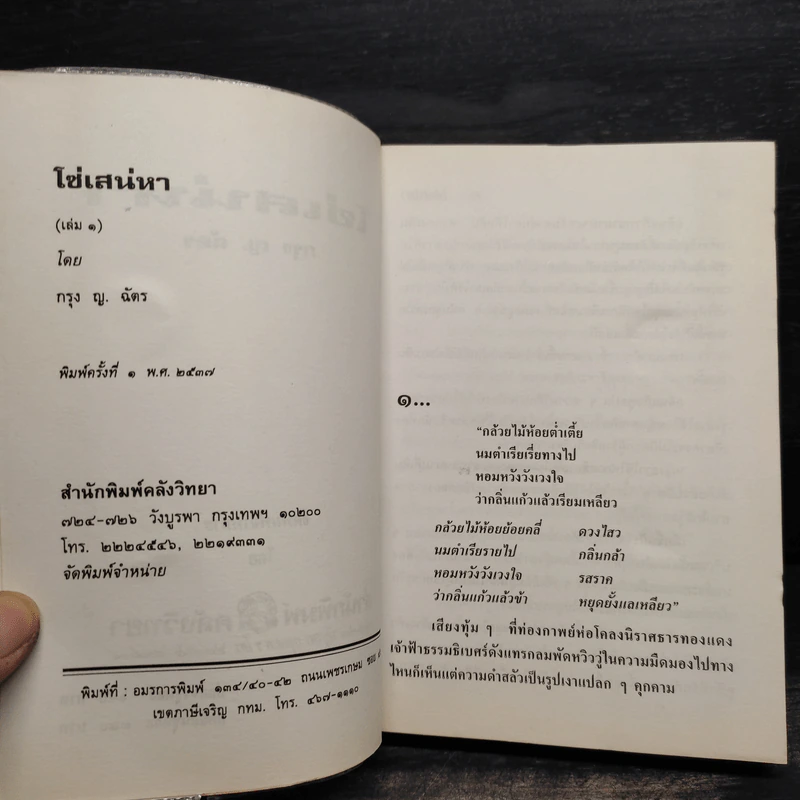 โซ่เสน่หา
(เล่ม ๑)
โดย
กรุง ญ. ฉัตร
พิมพ์ครั้งที่ ๑ พ.ศ. ๒๕๓๗
สำนักพิมพ์คลังวิทยา
๗๒๔-๗๒๖ วังบูรพา กรุงเทพฯ ๑๐๒๐๐
โทร. ๒๒๒๔๕๔๖, ๒๒๑๙๓๓๑
จัดพิมพ์จำหน่าย
พิมพ์ที่ : อมรการพิมพ์ ๑๓๔/๔๐-๔๒ ถนนเพชรเกษม ซอย
เขตภาษีเจริญ กทม. โทร. ๔๖๗-๑๑๑๐
๑...
“กล้วยไม้ห้อยต่ำเตี้ย
นมตำเรียเรี่ยทางไป
หอมหวังวังเวงใจ
ว่ากลิ่นแก้วแล้วเรียมเหลียว
กล้วยไม้ห้อยย้อยคลี่ ดวงไสว
นมตำเรียรายไป กลิ่นกล้า
หอมหวังวังเวงใจ รสราค
ว่ากลิ่นแก้วแล้วข้า หยุดยั้งแลเหลียว”
เสียงทุ้ม ๆ ที่ท่องกาพย์ห่อโคลงนิราศธารทองแดง
เจ้าฟ้าธรรมธิเบศร์ดังแทรกลมพัดหวิววู่ในความมืดมองไปทาง
ไหนก็เห็นแต่ความดำสลัวเป็นรูปเงาแปลก ๆ คุกคาม